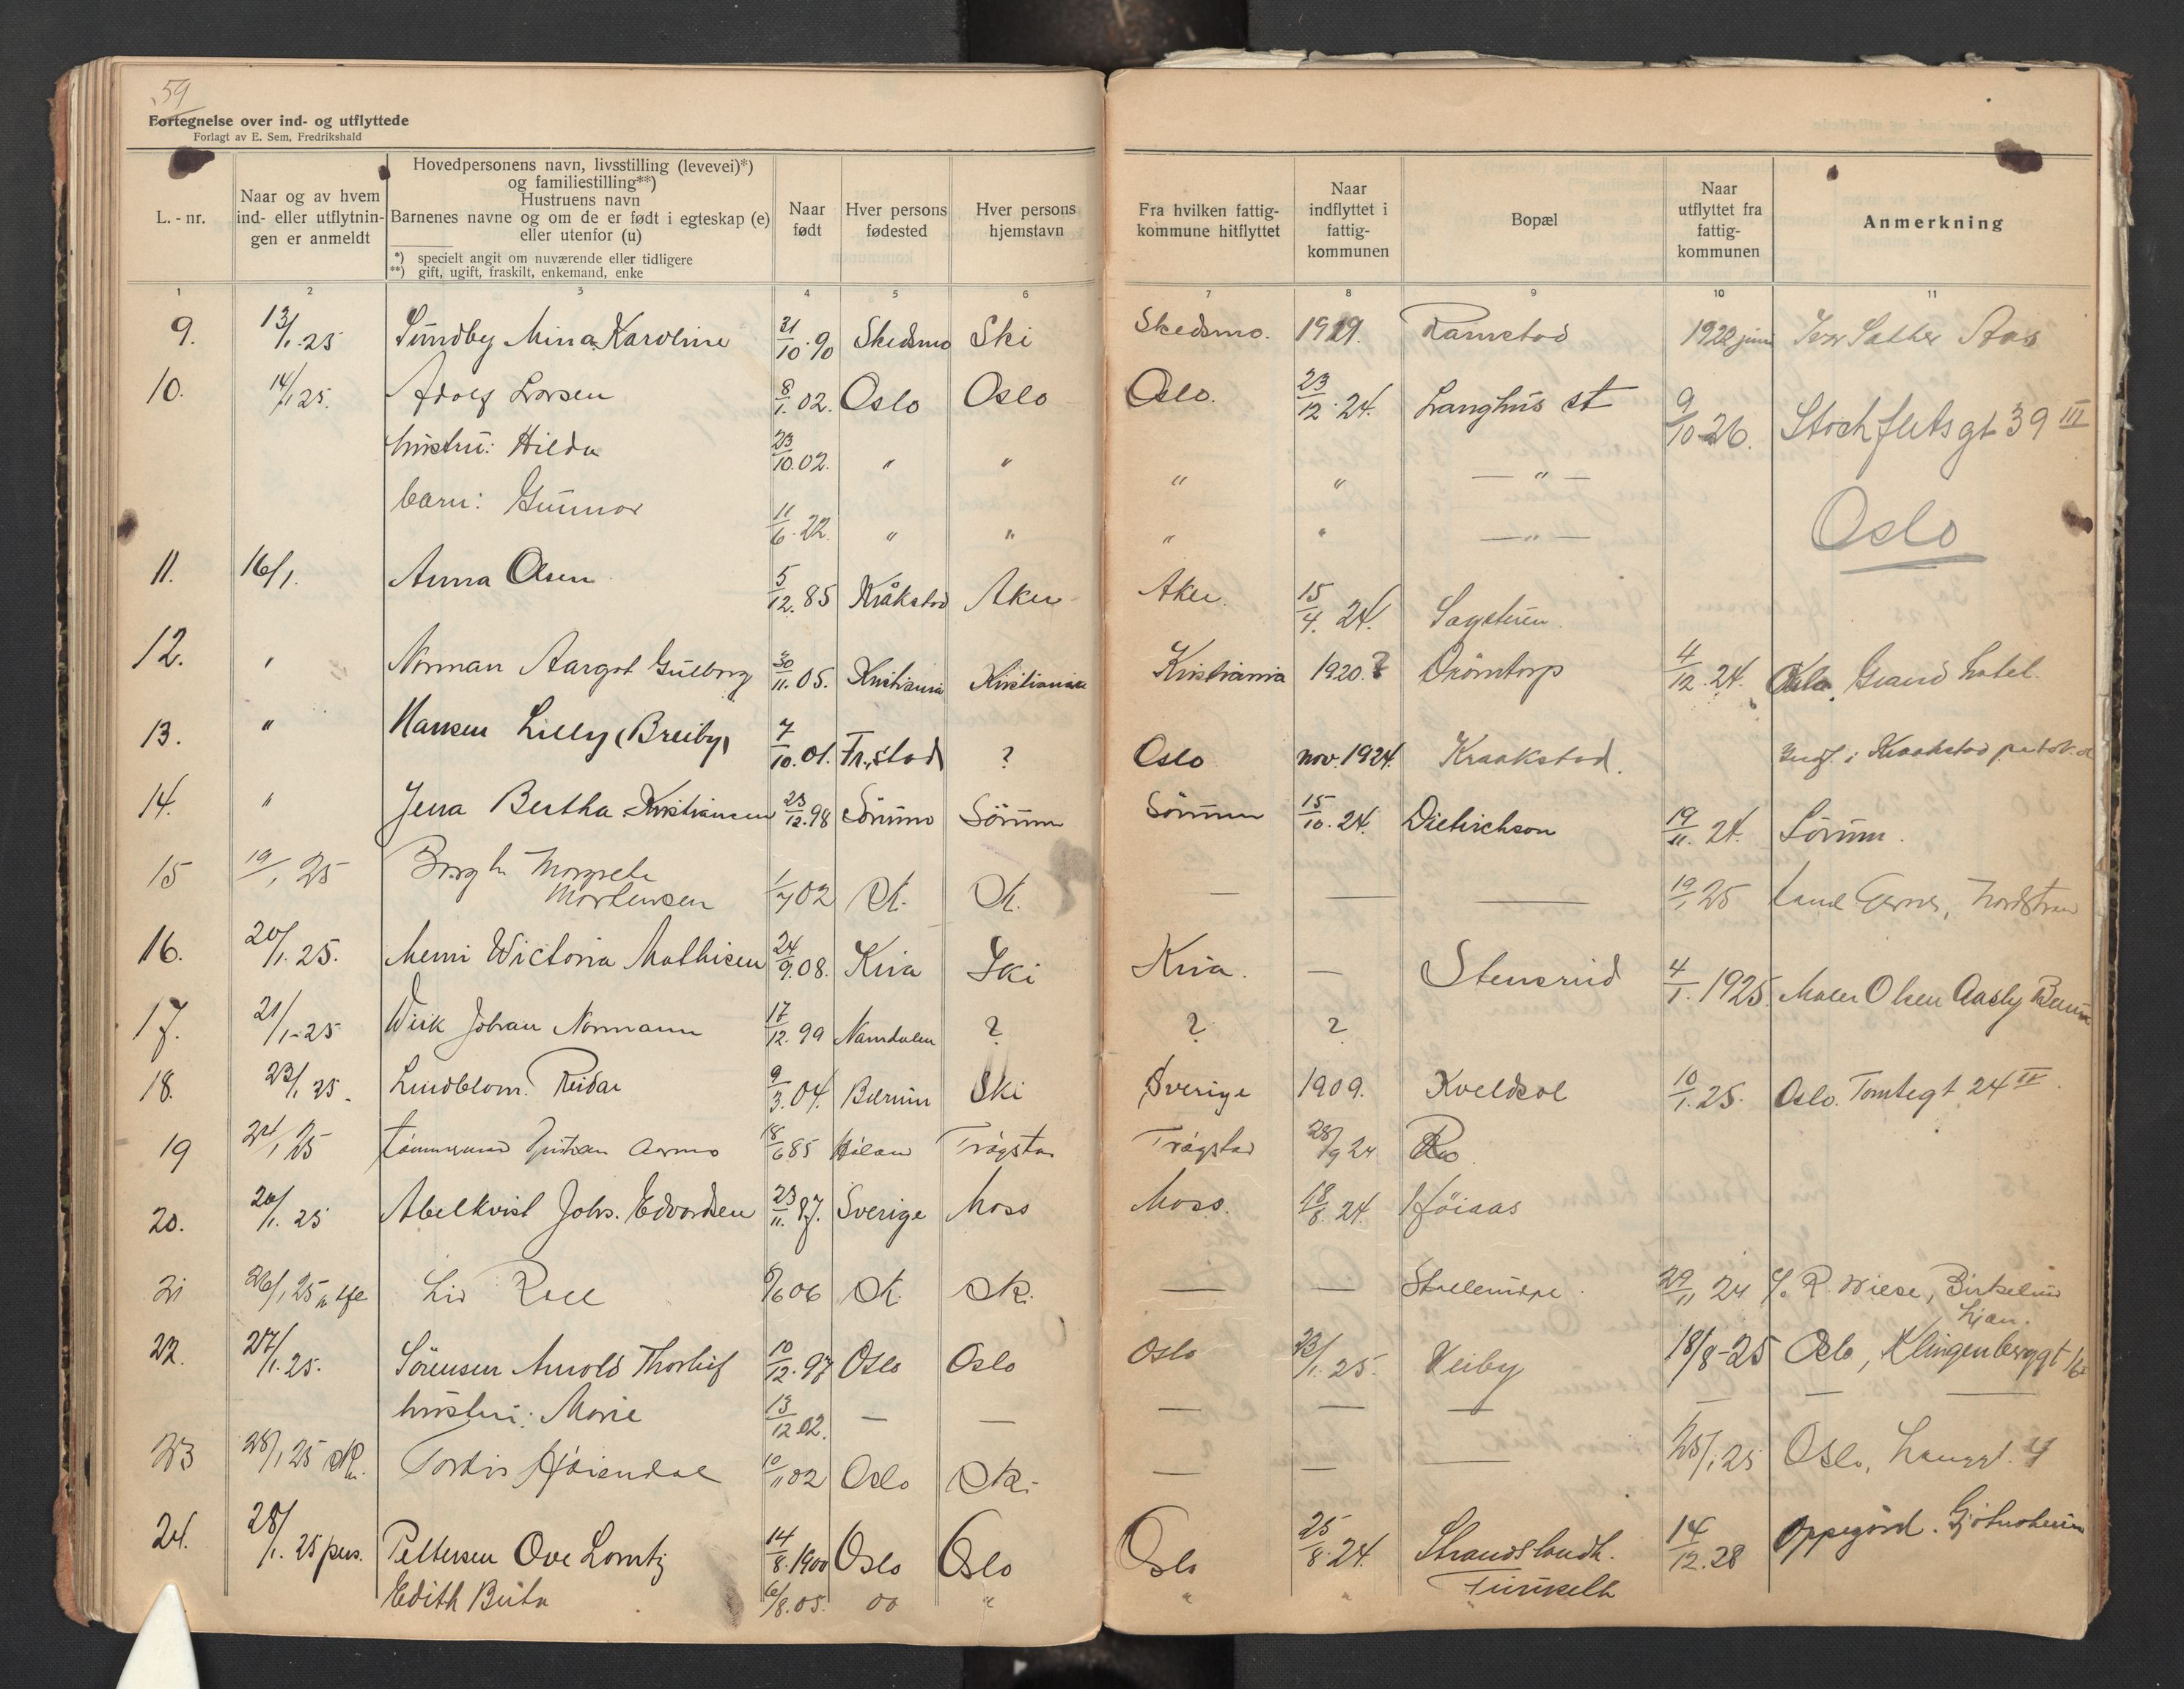 59
Fortegnelse over ind- og utflyttede
Forlagt av E. Sem, Fredrikshald
L. - nr.
Naar og av hvem
ind- eller utflytnin-
gen er anmeldt
Hovedpersonens navn, livsstilling (levevei)*)
og familiestilling**)
Hustruens navn
Barnenes navne og om de er født i egteskap (e)
eller utenfor (u)
*) specielt angit om nuværende eller tidligere
**) gift, ugift, fraskilt, enkemand, enke
Naar
født
Hver persons
fødested
Hver persons
hjemstavn
Fra hvilken fattig-
kommune hitflyttet
Naar
indflyttet i
fattig-
kommunen
Bopæl
Naar
utflyttet fra
fattig-
kommunen
Anmerkning
1 2 3 4 5 6 7 8 9 10 11
9. 13/1.25 Sundby Mina Karoline 31/10.90 Skedsmo Ski Skedsmo. 1919. Ramstad 1922 juni Aas
10. 14/1 25. Adolf Larsen 8/1.02. Oslo Oslo Oslo. 23/12.24. Langhus st 9/10-26. Stockfletsgt 39 III
hustru: Hilda 23/10.02. " " " " — " —
barn: Gunnar 11/6.22. " " " " — " — Oslo
11. 16/1. Anna Olsen 5/12.85 Kråkstad Aker Aker. 15/4.24. Sagstuen.
12. " Norman Aargot Gulborg 30/11.05. Kristiania Kristiania Kristiania 1920.? Drömtorp 4/12.24. Oslo. Grand hotel.
13. " Hansen Lilly (Breiby) 7/10.01. Fr.stad ? Oslo nov.1924. Kraakstad. Indf. i Kraakstad
14. " Jenna Bertha Kristiansen 23/12.98 Sörum Sörum Sörum 15/10.24. Dietrichson 19/11.24. Sörum.
15 19/1 25 Borgh. Margrete
Mortensen 1/7 02 Sk. Sk. — — — 19/1 25 Nordstrand
16. 20/1.25. Memi Wictoria Mathisen 24/9.08. Kria Ski Kria. — Stensrud 4/1.1925. Maler Olsen Aasly
17. 21/1-25 Wiik Johan Normann 17/12.99 Namdalen ? ? ?
18. 23/1 25. Lindblom. Reidar 9/3.04. Bærum Ski Sverige 1909. Kveldsol 10/1.25. Oslo. Tomtegt 24 IV.
19 24/1 25 18/6 85 Trögstad Trögstad 28/9 24
20. 20/1.25 Abelkvist Johs. Edvardsen 23/11.87. Sverige Moss Moss. 18/8.24. Höiaas
21 26/1 25 Liv Roll 9/6 06 Sk. Sk. — — 29/11 24 c/o R. Wiese, Birkelund
Ljan.
22. 27/1.25. Sörensen Arnold Thorleif 10/12.97 Oslo Oslo Oslo 23/1.25. Veiby 18/8-25 Oslo, Klingenberggt
hustru: Marie 13/12 02. — — — — — — —
23 28/1 25 Tordis Höiendal 10/11 02 Oslo Sk. — — — 25/1.25 Oslo,
24. 28/1.25 pers. Pettersen Ove Lorntz 14/8.1900 Oslo Oslo Oslo 25/8.24. Strandslandh. 14/12.28 Oppegård.
Edith 6/8.05. oo " " "